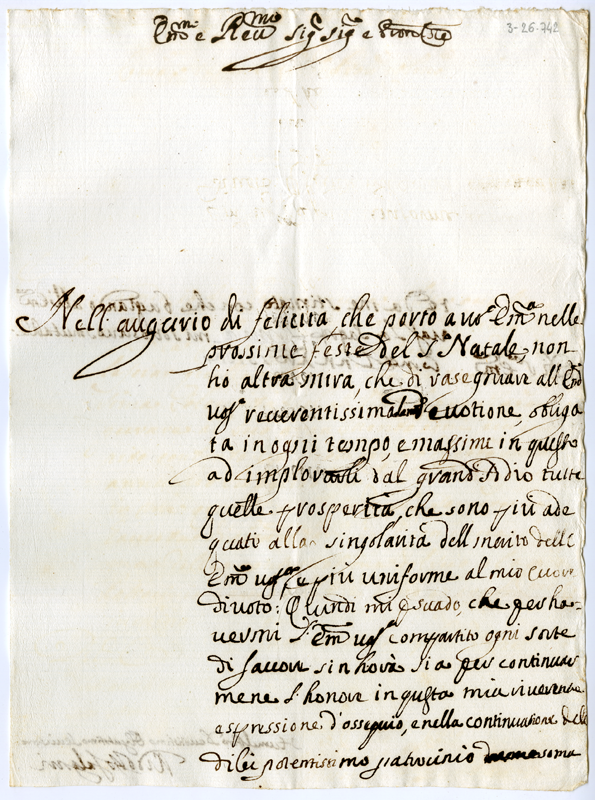 Em.mo e Rev.mo Sig.r Sig.r e Pron Col.mo
3-26-742
Nell'augurio di felicità, che porto a vos.a Em.za nelle
prossime feste del S. Natale, non
ho altra mira, che di rasegnare all'Em.za
vos.a reverentissima la mia devotione, obliga
ta in ogni tempo, e massime in questo
ad implorarli dal grand'Iddio tutte
quelle prosperità, che sono più ade
quate alla singolarità dell merito dell
Em.za vos.a, e più uniforme al mio cuore
divoto: Quindi mi p̱suado, che per ha-
vermi l'Em.za vos.a compartito ogni sorte
di favore sin hora sia per continuar
mene l'honore in questa mia riverente
espressione d'ossequio, e nella continuatione dell
di lei potentissimo patrocinio